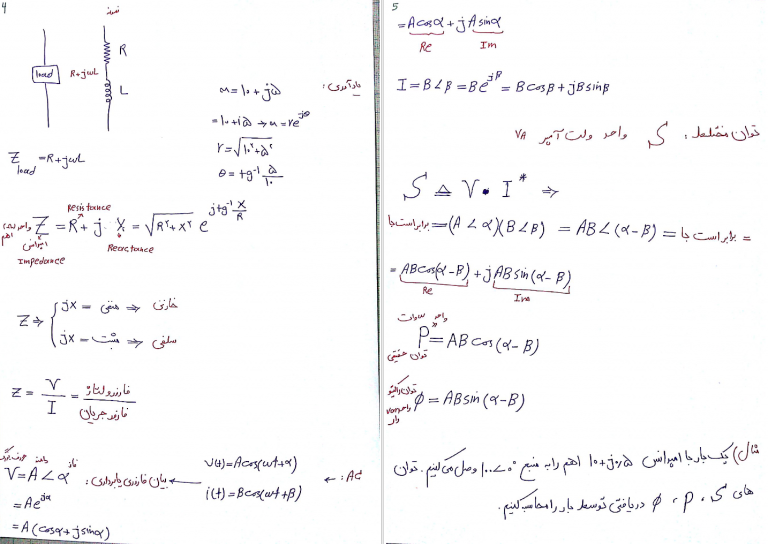 4
load
R+jωL
R
L
Z load = R+jωL
یادآوری:
u = ۱۰ + j۵
= ۱۰ + j۵ → u = re^jθ
r = √(۱۰^۲ + ۵^۲)
θ = tg^-1 ۵/۱۰
Resistance
Z = R + j X = √(R^۲ + X^۲) e^(j tg^-1 X/R)
امپدانس
Impedance
Reactance
Z ⇒ { jX = منفی ⇒ خازنی
jX = مثبت ⇒ سلفی
Z = V/I = فازور ولتاژ / فازور جریان
AC: ←
v(t) = A cos(ωt+α)
i(t) = B cos(ωt+β)
بیان فازوری یا برداری:
V = A∠α
= Ae^jα
= A(cosα + j sinα)
5
= A cosα + j A sinα
Re Im
I = B∠β = Be^jβ = B cosβ + jB sinβ
توان مختلط: S واحد ولت آمپر VA
S ≜ V • I* ⇒
= برابر است با = (A∠α)(B∠β) = AB∠(α-β) = برابر است با
= AB cos(α-β) + j AB sin(α-β)
Re Im
واحد وات
P = AB cos(α-β)
توان حقیقی
توان راکتیو
واحد var
وار
φ = AB sin(α-β)
مثال) یک بار با امپدانس ۱۰+j۰٫۵ اهم را به منبع ۱۰۰∠۰° وصل می کنیم. توان
های S، P، φ دریافتی توسط بار را محاسبه کنیم.